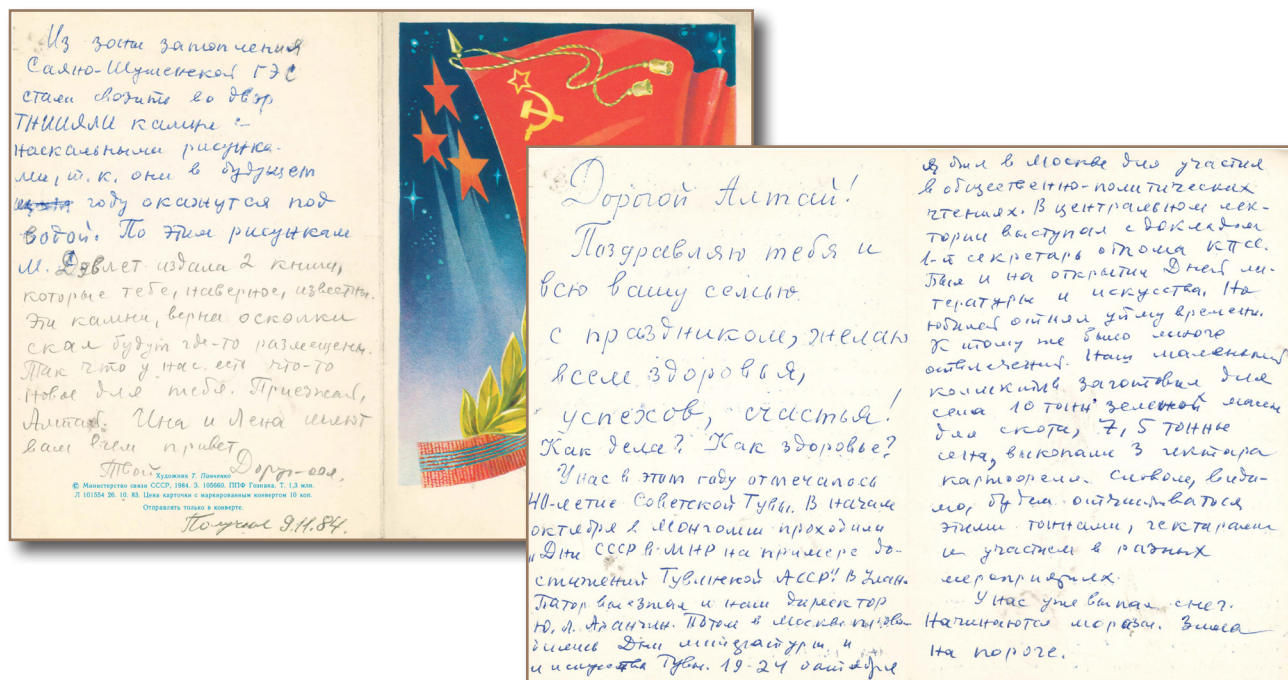 Из зоны затопления
Саяно-Шушенской ГЭС
стали свозить во двор
ТНИИЯЛИ камни с
наскальными рисунка-
ми, т.к. они в будущем
году окажутся под
водой. По этим рисункам
М. Дэвлет издала 2 книги,
которые тебе, наверное, известны.
Эти камни, верна осколки
скал будут где-то размещены.
Так что у нас есть что-то
новое для тебя. Приезжай,
Алтай. Ина и Лена шлют
вам всем привет
Твой Доруг-оол.
Художник Т. Панченко
© Министерство связи СССР, 1984. З. 105660. ППФ Гознака. Т. 1,3 млн.
Л 101554 26. 10. 83. Цена карточки с маркированным конвертом 10 коп.
Отправлять только в конверте.
Получил 9.11.84.
Дорогой Алтай!
Поздравляю тебя и
всю вашу семью
с праздником, желаю
всем здоровья,
успехов, счастья!
Как дела? Как здоровье?
У нас в этом году отмечалось
40-летие Советской Тувы. В начале
октября в Монголии проходили
„Дни СССР в МНР на примере до-
стижений Тувинской АССР". В Улан-
Батор выезжал и наш директор
Ю. Л. Аранчын. Потом в Москве
Дни литературы и
искусства Тувы. 19-24 октября
я был в Москве для участия
в общественно-политических
чтениях. В центральном лек-
тории выступал с докладом
1-й секретарь обкома КПСС.
Был и на открытии Дней ли-
тературы и искусства. Но
юбилей отнял уйму времени.
К тому же было много
отвлечений. Наш маленький
коллектив заготовил для
сена 10 тонн зеленой массы
для скота, 7,5 тонны
сена, выкопали 3 гектара
картофеля. Словом, види-
мо, будем отчитываться
этими тоннами, гектарами
и участием в разных
мероприятиях.
У нас уже выпал снег.
Начинаются морозы. Зима
на пороге.